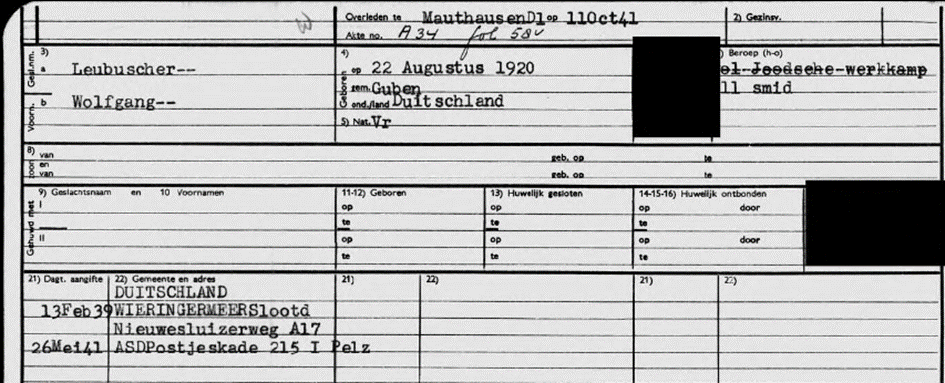 Overleden te MauthausenDl op 11Oct41 2) Gezinsv.
Akte no. A 34 fol 58v
3) Gesl.nm. a Leubscher--
Voorn. b Wolfgang--
4) Geboren op 22 Augustus 1920
gem. Guben
ond./land Duitschland
5) Nat. Vr
) Beroep (h-o)
el-Joodsche-werkkamp
ll smid
8) van geb. op te
zoon en
van geb. op te
9) Geslachtsnaam en 10 Voornamen 11-12) Geboren 13) Huwelijk gesloten 14-15-16) Huwelijk ontbonden
Gehuwd met I op op op door
te te te
II op op op door
te te te
21) Dagt. aangifte 22) Gemeente en adres 21) 22) 21) 22)
DUITSCHLAND
13Feb39 WIERINGERMEERSlootd
Nieuwesluizerweg A17
26Mei41 ASDPostjeskade 215 I Pelz